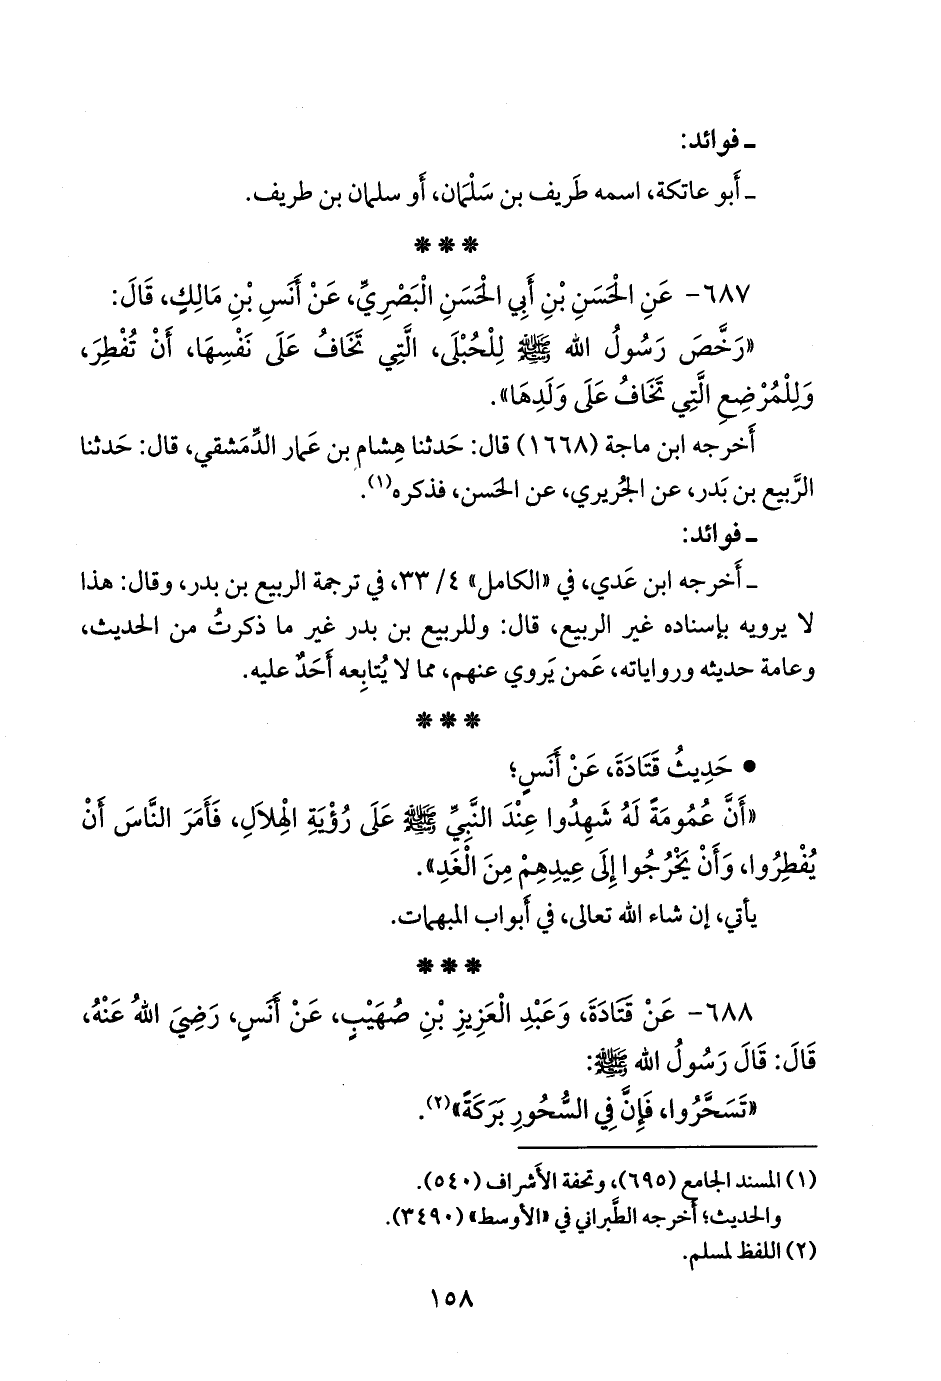 ـ فوائد:
ـ أَبو عاتكة، اسمه طَريف بن سَلْمَان، أَو سلمان بن طريف.
* * *
٦٨٧- عَنِ الْحَسَنِ بْنِ أَبِي الْحَسَنِ الْبَصْرِيِّ، عَنْ أَنَسِ بْنِ مَالِكٍ، قَالَ:
«رَخَّصَ رَسُولُ الله ﷺ لِلْحُبْلَى، الَّتِي تَخَافُ عَلَى نَفْسِهَا، أَنْ تُفْطِرَ،
وَلِلْمُرْضِعِ الَّتِي تَخَافُ عَلَى وَلَدِهَا».
أَخرجه ابن ماجة (١٦٦٨) قال: حَدثنا هِشام بن عَمار الدِّمَشقي، قال: حَدثنا
الرَّبيع بن بَدر، عن الجُريري، عن الحَسن، فذكره(١).
ـ فوائد:
ـ أَخرجه ابن عَدي، في «الكامل» ٤/ ٣٣، في ترجمة الربيع بن بدر، وقال: هذا
لا يرويه بإسناده غير الربيع، قال: وللربيع بن بدر غير ما ذكرتُ من الحديث،
وعامة حديثه ورواياته، عَمن يَروي عنهم، مما لا يُتابِعه أَحَدٌ عليه.
* * *
● حَدِيثُ قَتَادَةَ، عَنْ أَنَسٍ؛
«أَنَّ عُمُومَةً لَهُ شَهِدُوا عِنْدَ النَّبِيِّ ﷺ عَلَى رُؤْيَةِ الْهِلَالِ، فَأَمَرَ النَّاسَ أَنْ
يُفْطِرُوا، وَأَنْ يَخْرُجُوا إِلَى عِيدِهِمْ مِنَ الْغَدِ».
يأتي، إن شاء الله تعالى، في أَبواب المبهمات.
* * *
٦٨٨- عَنْ قَتَادَةَ، وَعَبْدِ الْعَزِيزِ بْنِ صُهَيْبٍ، عَنْ أَنَسٍ، رَضِيَ اللهُ عَنْهُ،
قَالَ: قَالَ رَسُولُ الله ﷺ:
«تَسَحَّرُوا، فَإِنَّ فِي السُّحُورِ بَرَكَةً»(٢).
(١) المسند الجامع (٦٩٥)، وتحفة الأَشراف (٥٤٠).
والحديث؛ أَخرجه الطَّبراني في «الأوسط» (٣٤٩٠).
(٢) اللفظ لمسلم.
١٥٨